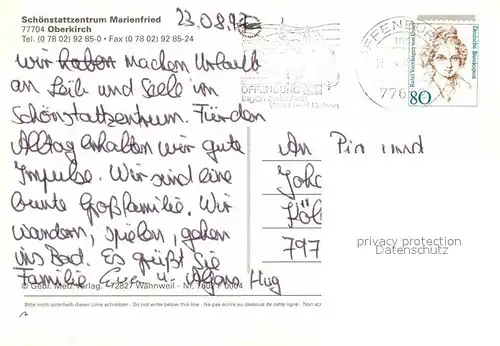 Schönstattzentrum Marienfried
77704 Oberkirch
Tel. (0 78 02) 92 85-0 • Fax (0 78 02) 92 85-24
23.08.97
Wir haben machen Urlaub
an Leib und Seele im
Schönstattzentrum. Für den
Alltag erhalten wir gute
Impulse. Wir sind eine
bunte Großfamilie. Wir
wandern, spielen, gehen
ins Bad. Es grüßt Sie
Familie u. Hug
OFFENBURG
776
Deutsche Bundespost
80
An
und
Joha
Köl
797
privacy protection
Datenschutz
Bitte nicht unterhalb dieser Linie schreiben - Do not write below this line - Ne pas écrire au dessous de cette ligne - Non scri
© Gebr. Metz Verlag, 72827 Wannweil - Nr. 7602 F 0004